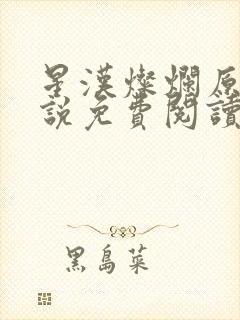 星漢燦爛原
說免費閱讀
黑島菜